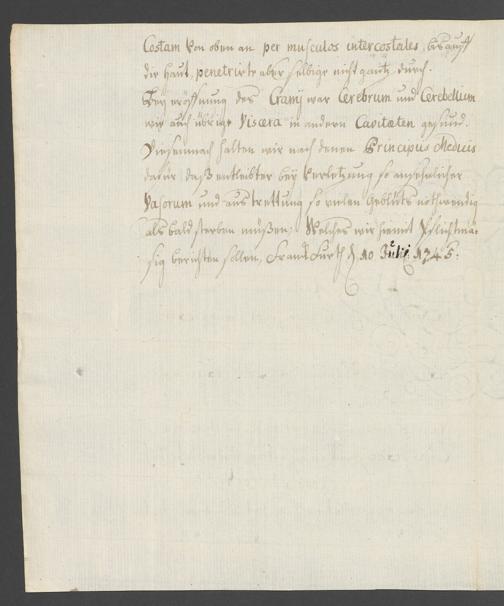 Costam von oben an per musculos intercostales, bis auff
die haut, penetrirte aber selbige nicht gantz durch.
Bey eröffnung des Cranij war Cerebrum und Cerebellum
wie auch übrige Viscera in andern Cavitæten gesund.
Diesemnach halten wir nach denen Principiis Medicis
davor daß entleibter bey Verletzung so ansehnlicher
Vasorum und austrettung so vielen Geblüts nothwendig
als bald sterben müßen, Welches wir hiemit Pflichtmä-
sig berichten sollen, Franckfurth d 10 Julii 1745.